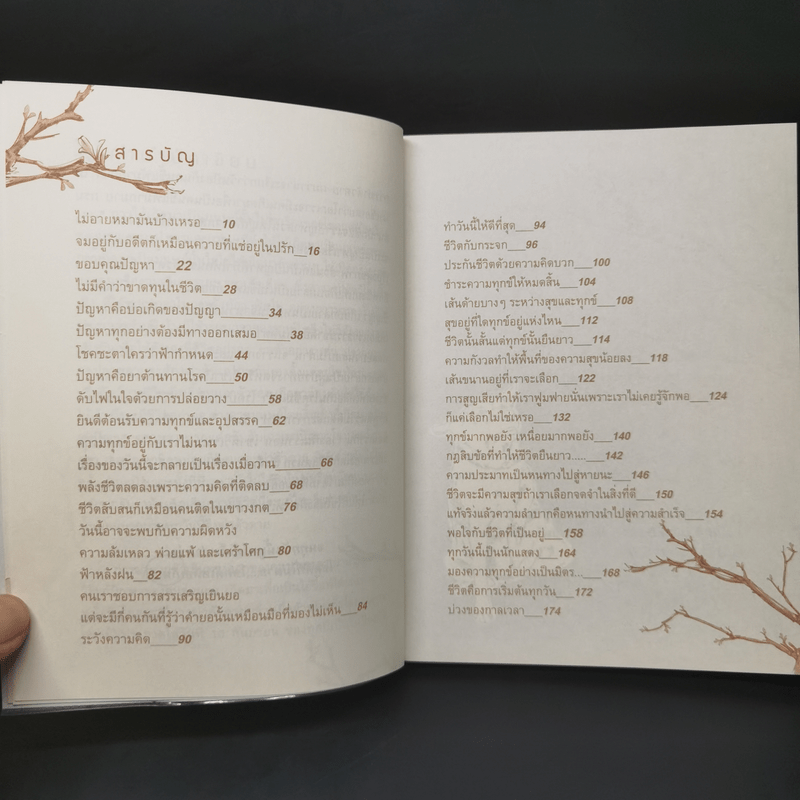 สารบัญ
ไม่อายหมามันบ้างเหรอ___10
จมอยู่กับอดีตก็เหมือนควายที่แช่อยู่ในปรัก__16
ขอบคุณปัญหา___22
ไม่มีคำว่าขาดทุนในชีวิต___28
ปัญหาคือบ่อเกิดของปัญญา_______34
ปัญหาทุกอย่างต้องมีทางออกเสมอ____38
โชคชะตาใครว่าฟ้ากำหนด___44
ปัญหาคือยาต้านทานโรค____50
ดับไฟในใจด้วยการปล่อยวาง_____58
ยินดีต้อนรับความทุกข์และอุปสรรค__62
ความทุกข์อยู่กับเราไม่นาน
เรื่องของวันนี้จะกลายเป็นเรื่องเมื่อวาน_______66
พลังชีวิตลดลงเพราะความคิดที่ติดลบ___68
ชีวิตสับสนก็เหมือนคนติดในเขาวงกต__76
วันนี้อาจจะพบกับความผิดหวัง
ความล้มเหลว พ่ายแพ้ และเศร้าโศก__80
ฟ้าหลังฝน__82
คนเราชอบการสรรเสริญเยินยอ
แต่จะมีกี่คนกันที่รู้ว่าคำยอนั้นเหมือนมือที่มองไม่เห็น___84
ระวังความคิด____90
ทำวันนี้ให้ดีที่สุด___94
ชีวิตกับกระจก___96
ประกันชีวิตด้วยความคิดบวก___100
ชำระความทุกข์ให้หมดสิ้น___104
เส้นด้ายบางๆ ระหว่างสุขและทุกข์___108
สุขอยู่ที่ใดทุกข์อยู่แห่งไหน___112
ชีวิตนั้นสั้นแต่ทุกข์นั้นยืนยาว___114
ความกังวลทำให้พื้นที่ของความสุขน้อยลง___118
เส้นขนานอยู่ที่เราจะเลือก____122
การสูญเสียทำให้เราฟูมฟายนั่นเพราะเราไม่เคยรู้จักพอ___124
ก็แค่เลือกไม่ใช่เหรอ___132
ทุกข์มากพอยัง เหนื่อยมากพอยัง____140
กฎสิบข้อที่ทำให้ชีวิตยืนยาว.....___142
ความประมาทเป็นหนทางไปสู่หายนะ___146
ชีวิตจะมีความสุขถ้าเราเลือกจดจำในสิ่งที่ดี___150
แท้จริงแล้วความลำบากคือหนทางนำไปสู่ความสำเร็จ___154
พอใจกับชีวิตที่เป็นอยู่___158
ทุกวันนี้เป็นนักแสดง___164
มองความทุกข์อย่างเป็นมิตร...___168
ชีวิตคือการเริ่มต้นทุกวัน___172
บ่วงของกาลเวลา___174